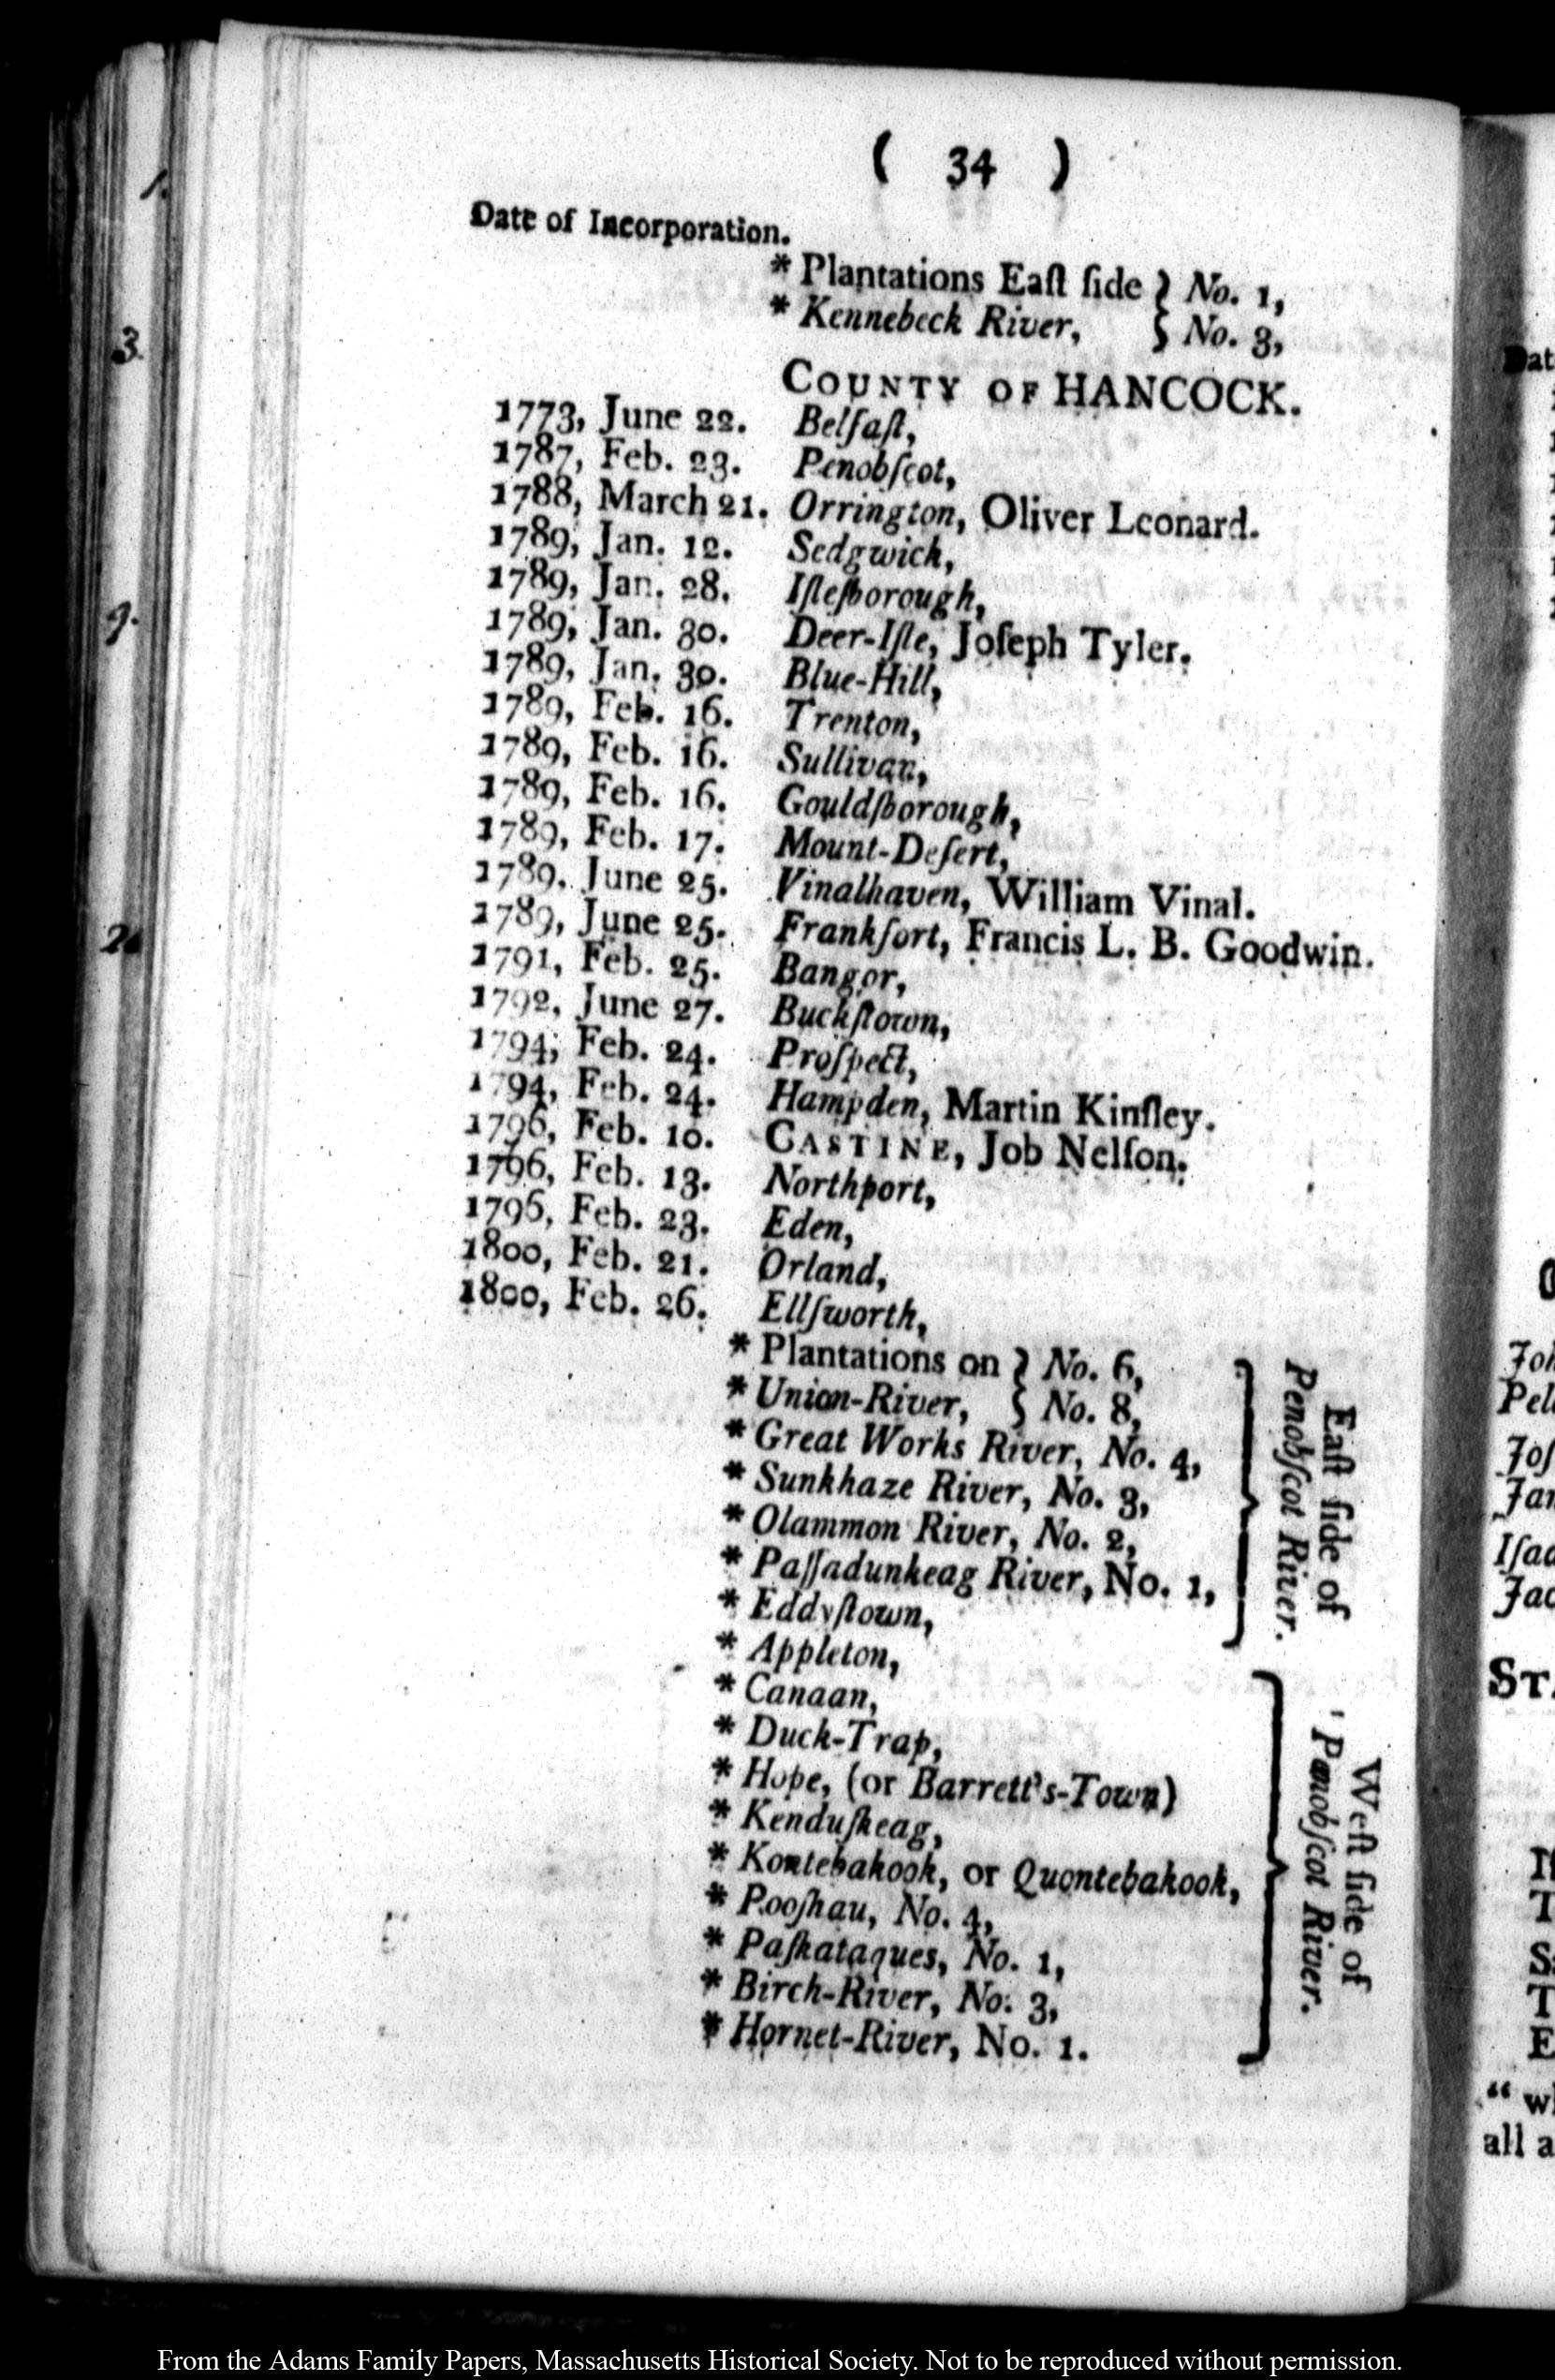 ( 34 )
Date of Incorporation.
* Plantations Eaſt ſide } No. 1,
* Kennebeck River, } No. 3,
COUNTY OF HANCOCK.
1773, June 22. Belfaſt,
1787, Feb. 23. Penobſcot,
1788, March 21. Orrington, Oliver Leonard.
1789, Jan. 12. Sedgwich,
1789, Jan. 28. Iſleſborough,
1789, Jan. 30. Deer-Iſle, Joſeph Tyler.
1789, Jan. 30. Blue-Hill,
1789, Feb. 16. Trenton,
1789, Feb. 16. Sullivan,
1789, Feb. 16. Gouldſborough,
1789, Feb. 17. Mount-Deſert,
1789, June 25. Vinalhaven, William Vinal.
1789, June 25. Frankfort, Francis L. B. Goodwin.
1791, Feb. 25. Bangor,
1792, June 27. Buckſtown,
1794, Feb. 24. Proſpect,
1794, Feb. 24. Hampden, Martin Kinſley.
1796, Feb. 10. CASTINE, Job Nelſon.
1796, Feb. 13. Northport,
1796, Feb. 23. Eden,
1800, Feb. 21. Orland,
1800, Feb. 26. Ellſworth,
* Plantations on } No. 6,
* Union-River, } No. 8,
* Great Works River, No. 4,
* Sunkhaze River, No. 3,
* Olammon River, No. 2,
* Paſſadunkeag River, No. 1,
* Eddyſtown,
Eaſt ſide of
Penobſcot River.
* Appleton,
* Canaan,
* Duck-Trap,
* Hope, (or Barrett's-Town)
* Kenduſkeag,
* Kontebakook, or Quontebakook,
* Pooſhau, No. 4,
* Paſkataques, No. 1,
* Birch-River, No. 3,
* Hornet-River, No. 1.
Weſt ſide of
Penobſcot River.
1.
3.
9.
Joh
Pel
Joſ
Jan
Iſaa
Jac
STA
T
T
E
" wh
all a
From the Adams Family Papers, Massachusetts Historical Society. Not to be reproduced without permission.